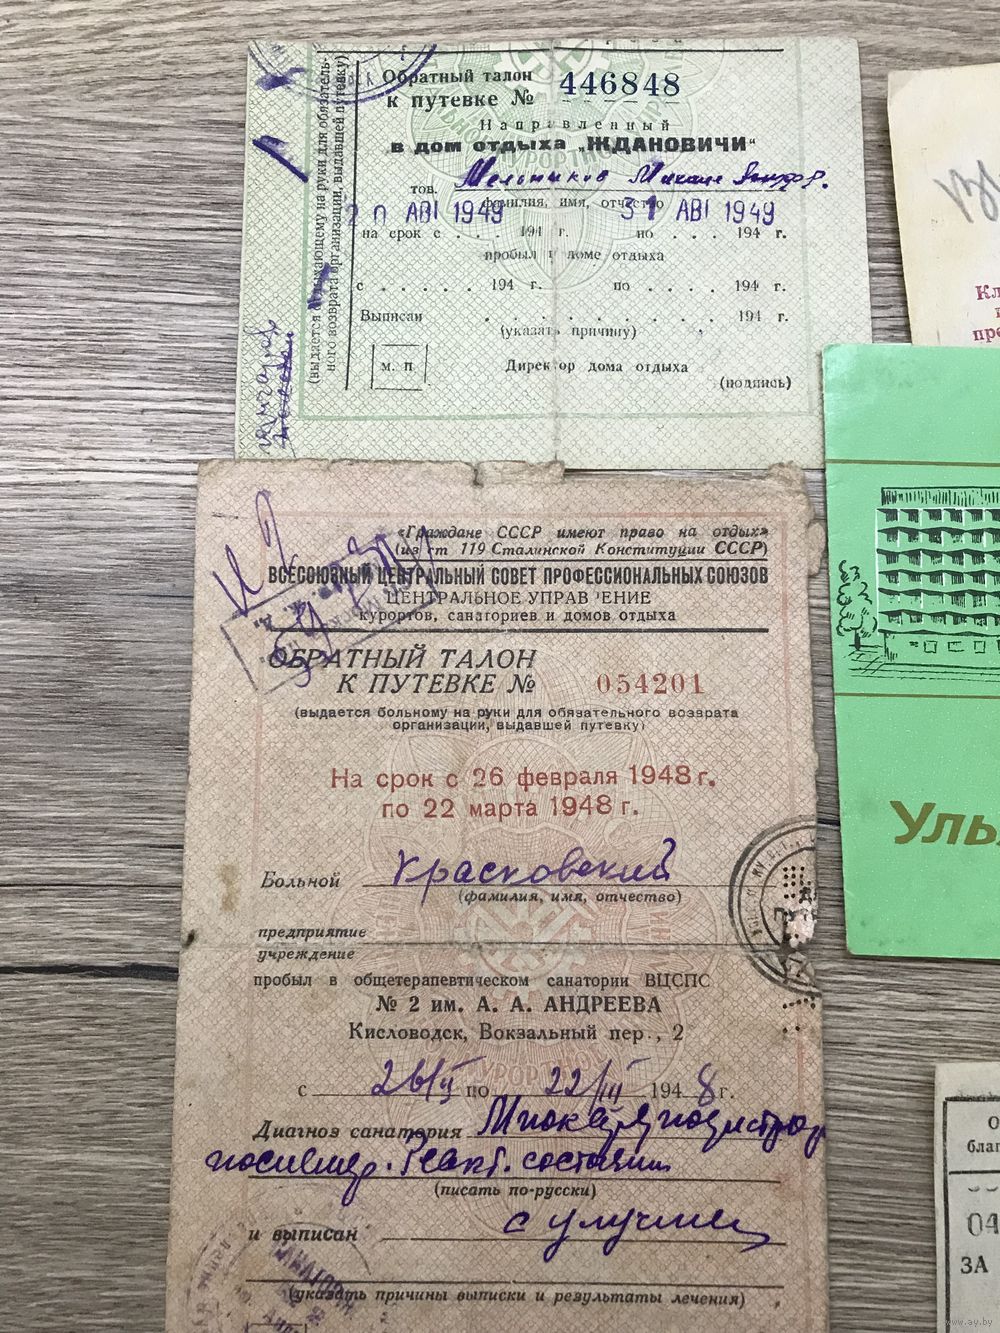 Обратный талон
к путевке № 446848
Направленный
в дом отдыха „ЖДАНОВИЧИ“
тов. Мельников Михаил
фамилия, имя, отчество
20 АВГ 1949 31 АВГ 1949
на срок с . . . 194 г. по . . . 194 г.
пробыл в доме отдыха
с . . . . . 194 г. по . . . . 194 г.
Выписан . . . . . . . . . 194 г.
(указать причину)
м. п Директор дома отдыха
(подпись)
(выдается отдыхающему на руки для обязатель-
ного возврата организации, выдавшей путевку)
«Граждане СССР имеют право на отдых»
(из ст 119 Сталинской Конституции СССР)
ВСЕСОЮЗНЫЙ ЦЕНТРАЛЬНЫЙ СОВЕТ ПРОФЕССИОНАЛЬНЫХ СОЮЗОВ
ЦЕНТРАЛЬНОЕ УПРАВЛЕНИЕ
курортов, санаториев и домов отдыха
ОБРАТНЫЙ ТАЛОН
К ПУТЕВКЕ № 054201
(выдается больному на руки для обязательного возврата
организации, выдавшей путевку)
На срок с 26 февраля 1948 г.
по 22 марта 1948 г.
Больной Красковский
(фамилия, имя, отчество)
предприятие
учреждение
пробыл в общетерапевтическом санатории ВЦСПС
№ 2 им. А. А. АНДРЕЕВА
Кисловодск, Вокзальный пер., 2
с 26/II по 22/III 1948 г.
Диагноз санатория Миокардиодистрофия
состояние
(писать по-русски)
и выписан с улучшен
(указать причины выписки и результаты лечения)
САНАТОРИЙ
Кл
пре
Уль
О
благ
04
ЗА
www.ay.by